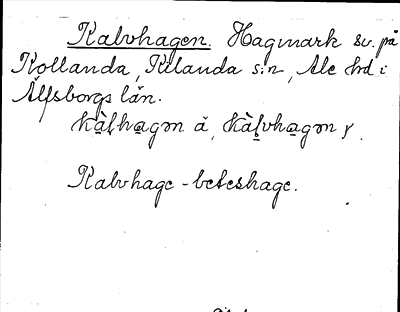 Kalvhagen. Hagmark sv. på
Kollanda, Kilanda s:n, Ale hd i
Älfsborgs län.
kàl̥hagən ä, kàl̥vhagən y.
Kalvhage - beteshage.